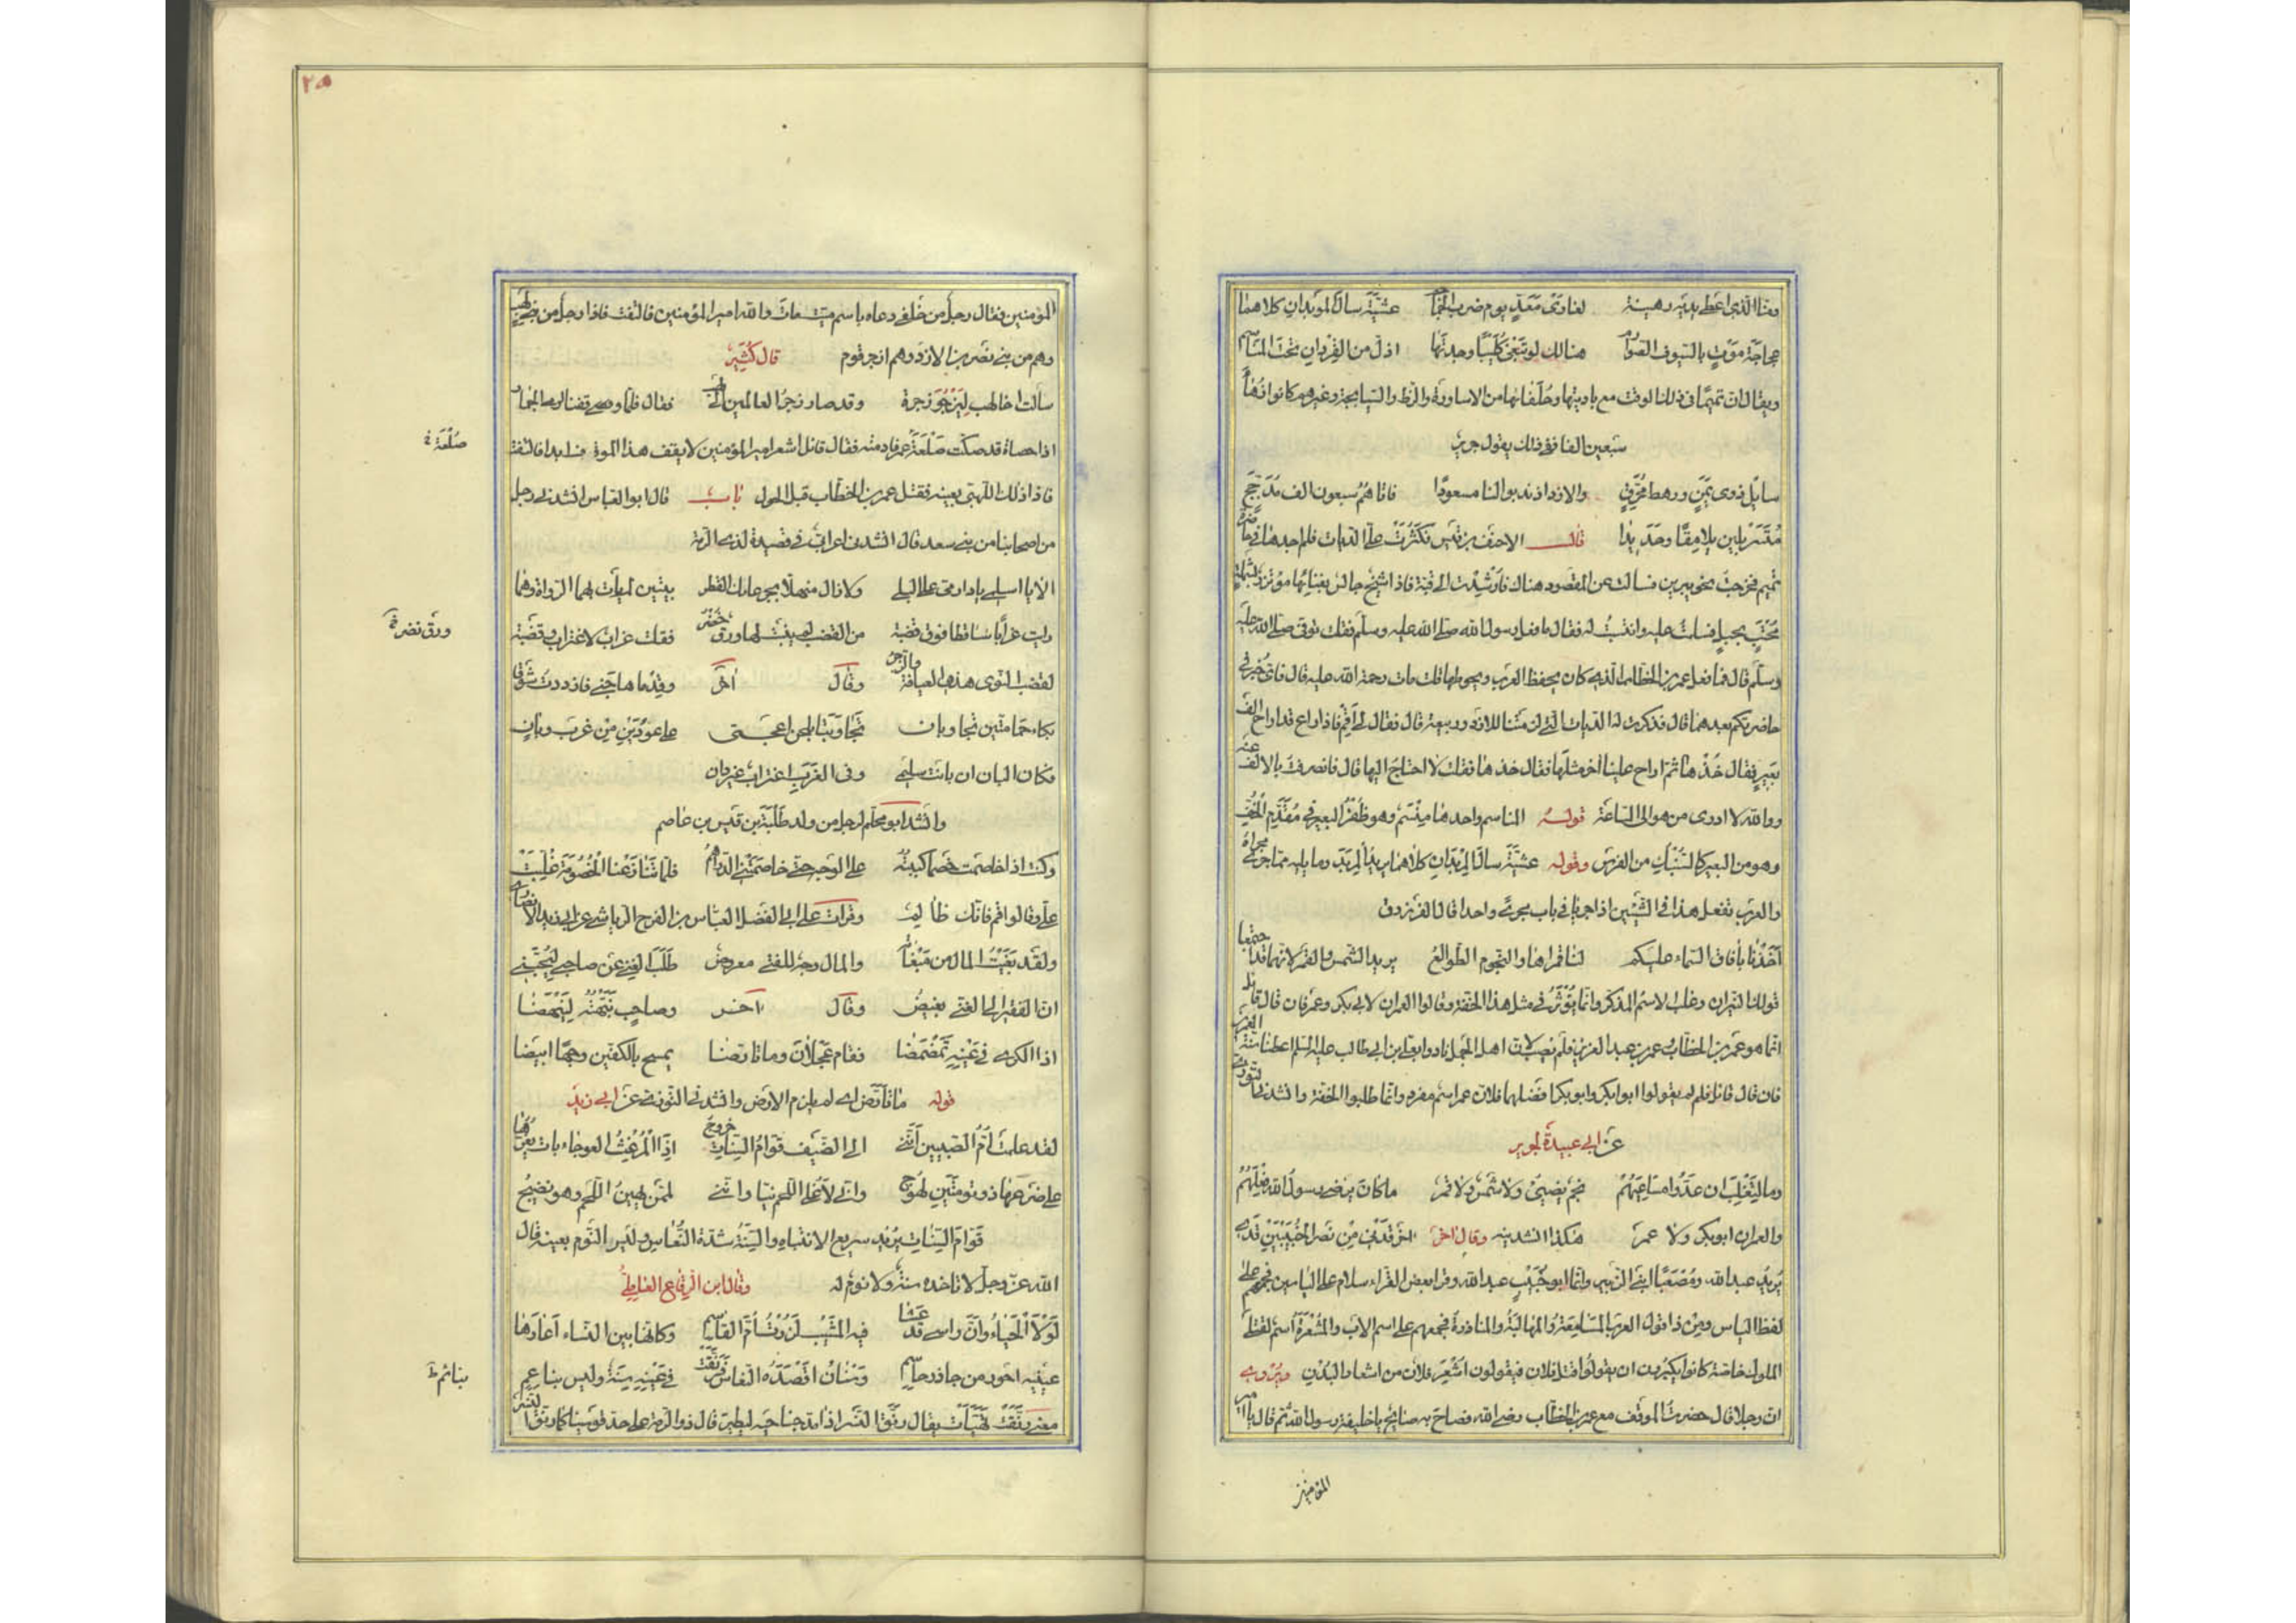 ومنا الذي اعطى يديه رهينة لغاري معد يوم ضرب الجماجم عشية سال المربدان كلاهما
عجاجة موت بالسيوف الصوارم هنالك لو تبغي كليبا وجدتها اذل من القردان تحت المناسم
ويقال ان تميما في ذلك الوقت مع باديتها وحلفائها من الاساورة والزط والسيابجة وغيرهم كانوا زهاء
سبعين الفا ففي ذلك يقول جرير
سايل ذوي يمن ورهط محرق والازد اذ ندبوا لنا مسعودا فاتاهم سبعون الف مدجج
متسربلين يلامقا وحديدا قال الاحنف بن قيس فكثرت علي الديات فلم اجدها في حاضرة
تميم فخرجت نحو يبرين فسالت عن المقصود هناك فارشدت الى قبة فاذا شيخ جالس بفنائها مؤتزر بشملة
محتب بحبل فسلمت عليه وانتسبت له فقال ما فعل رسول الله صلى الله عليه وسلم فقلت توفي صلى الله عليه
وسلم قال فما فعل عمر بن الخطاب الذي كان يحفظ العرب ويحوطها قلت مات رحمة الله عليه قال فاي خير في
حاضرتكم بعدهما قال فذكرت له الديات التي لزمتنا للازد وربيعة قال فقال لي اقم فاذا راع قد اراح الف
بعير فقال خذها ثم اراح علينا آخر مثلها فقال خذها فقلت لا احتاج اليها قال فانصرفت بالالف عنه
ووالله لا ادري من هو الى الساعة قوله المناسم واحدها منسم وهو ظفر البعير في مقدم الخف
وهو من البعير كالسنبك من الفرس وقوله عشية سال المربدان كلاهما يريد المربد وما يليه مما جرى مجراه
والعرب تفعل هذا في الشيئين اذا جريا في باب مجرى واحدا قال الفرزدق
اخذنا بافاق السماء عليكم لنا قمراها والنجوم الطوالع يريد الشمس والقمر لانهما قد اجتمعا
قولك النيران وغلب الاسم المذكر وانما يؤثر في مثل هذا الخفة وقالوا العمران لابي بكر وعمر فان قال قائل
انما هو عمر بن الخطاب وعمر بن عبد العزيز فلم يصب لان اهل الجمل نادوا بعلي بن ابي طالب عليه السلم اعطنا سنة العمرين
فان قال قائل فلم لم يقولوا ابوا بكر وابو بكر افضلهما فلان عمر اسم مفرد وانما طلبوا الخفة وانشدني التوزي
عن ابي عبيدة لجرير
وما لتغلب ان عدوا مساعيهم نجم يضيئ ولا شمس ولا قمر ما كان يرضى رسول الله فعلهم
والعمران ابو بكر ولا عمر هكذا انشدنيه وقال اخر قدني من نصر الخبيبين قدي
يريد عبد الله ومصعبا ابني الزبير وانما ابو خبيب عبد الله وقرا بعض القراء سلام على الياسين فجمعهم على
لفظ الياس ومن ذا قول العرب المسامعة والمهالبة والمناذرة فجمعهم على اسم الاب والمشعرة اسم لقتلى
الملوك خاصة كانوا يكبرون ان يقولوا قتل فلان فيقولون اشعر فلان من اشعار البدن ويروى
ان رجلا قال حضرت الموقف مع عمر بن الخطاب رضي الله فصاح به صائح يا خليفة رسول الله ثم قال يا امير
المؤمنين
٢٥
المؤمنين فقال رجل من خلفي دعاه باسم ميت مات والله امير المؤمنين فالتفت فاذا رجل من بني لهب
وهم من بني نصر بن الازد وهم ازجر قوم قال كثير
سالت اخا لهب ليزجر زجرة وقد صار زجر العالمين الى لهب فقال فلما وصى وقفنا لرمي الجمار
اذا حصاة قد صكت صلعة عمر فادمته فقال قائل اشعر امير المؤمنين لا يقف هذا الموقف ابدا فالتفت
صلعة خ
فاذا ذلك اللهبي بعينه فقتل عمر بن الخطاب قبل الحول باب قال ابو العباس انشدني رجل
من اصحابنا من بني سعد قال انشدني اعرابي في قصيدة لذي الرمة
الا يا اسلمي يا دار مي على البلى ولا زال منهلا بجرعائك القطر بيتين لم يات بهما الرواة وهما
رايت غرابا ساقطا فوق قضبة من القضب لم ينبت لها ورق خضر فقلت غراب لاغتراب وقضبة
ورق نضر خ
لقضب النوى هذي العيافة والزجر وقال آخر وقدما هاجني فازددت شوقا
بكاء حمامتين تجاوبان تجاوبتا بلحن اعجمي على عودين من غرب وبان
فكان البان ان بانت سليمى وفي الغرب اغتراب غير دان
وانشد ابو محلم لرجل من ولد طلبة بن قيس بن عاصم
وكنت اذا خاصمت خصما كببته على الوجه حتى خاصمتني الدراهم فلما تنازعنا الخصومة غلبت
علي وقالوا قم فانك ظالم وقرات على ابي الفضل العباس بن الفرج الرياشي عن ابي زيد الانصاري
ولقد بغيت المال من مبغاته والمال وجه للفتى معروض طلب الغنى عن صاحبي ليحبني
ان الفقير الى الغني بغيض وقال آخر وصاحب نبهته لينهضا
اذا الكرى في عينه تمضمضا فقام عجلان وما تارضا يمسح بالكفين وجها ابيضا
قوله ما تارض اي لم يلزم الارض وانشدني التوزي عن ابي زيد
لقد علمت ام الصبيين انني الى الضيف قوام السنات خروج اذا المرغث العوجاء بات يعزها
على ضرعها ذو تومتين لهوج واني لاغلي اللحم نيا وانني لممن يهين اللحم وهو نضيج
قوام السنات يريد سريع الانتباه والسنة شدة النعاس وليس النوم بعينه قال
الله عز وجل لا تاخذه سنة ولا نوم له وقال ابن الرقاع العاملي
لولا الحياء وان راسي قد عسا فيه المشيب لزرت ام القاسم وكانها بين النساء اعارها
عينيه احور من جاذر جاسم وسنان اقصده النعاس فرنقت في عينه سنة وليس بناعم
بنائم خ
معنى رنقت تهيات يقال رنق النسر اذا مد جناحيه ليطير قال ذو الرمة على حد قوسينا كما رنق النسر